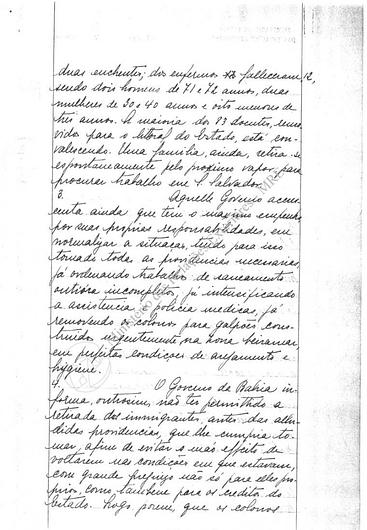 duas enchentes; dos enfermos falleceram 12,
sendo dois homens de 71 e 72 annos, duas
mulheres de 30 e 40 annos e oito menores de
tres annos. A maioria dos 83 doentes, remo-
vidos para o littoral do Estado, está con-
valescendo. Uma familia, ainda, retira-se
espontaneamente pelo proximo vapor, para
procurar trabalho em S. Salvador.
3. Aquelle Governo accres-
centa ainda que tem o maximo empenho,
por suas proprias responsabilidades, em
normalizar a situação, tendo para isso
tomado todas as providencias necessarias,
já ordenando trabalho de saneamento
outróra incompletos, já intensificando
a assistencia e policia medicas, já
removendo os colonos para galpões cons-
truidos urgentemente na zona beiramar,
em perfeitas condições de arejamento e
hygiene.
4. O Governo da Bahia in-
forma, outrosim, não ter permittido a
retirada dos immigrantes, antes das allu-
didas providencias, que lhe cumpria to-
mar, afim de evitar o máo effeito de
voltarem nas condições em que estavam,
com grande prejuizo não só para elles pro-
prios, como tambem para os creditos do
Estado. Logo porem, que os colonos